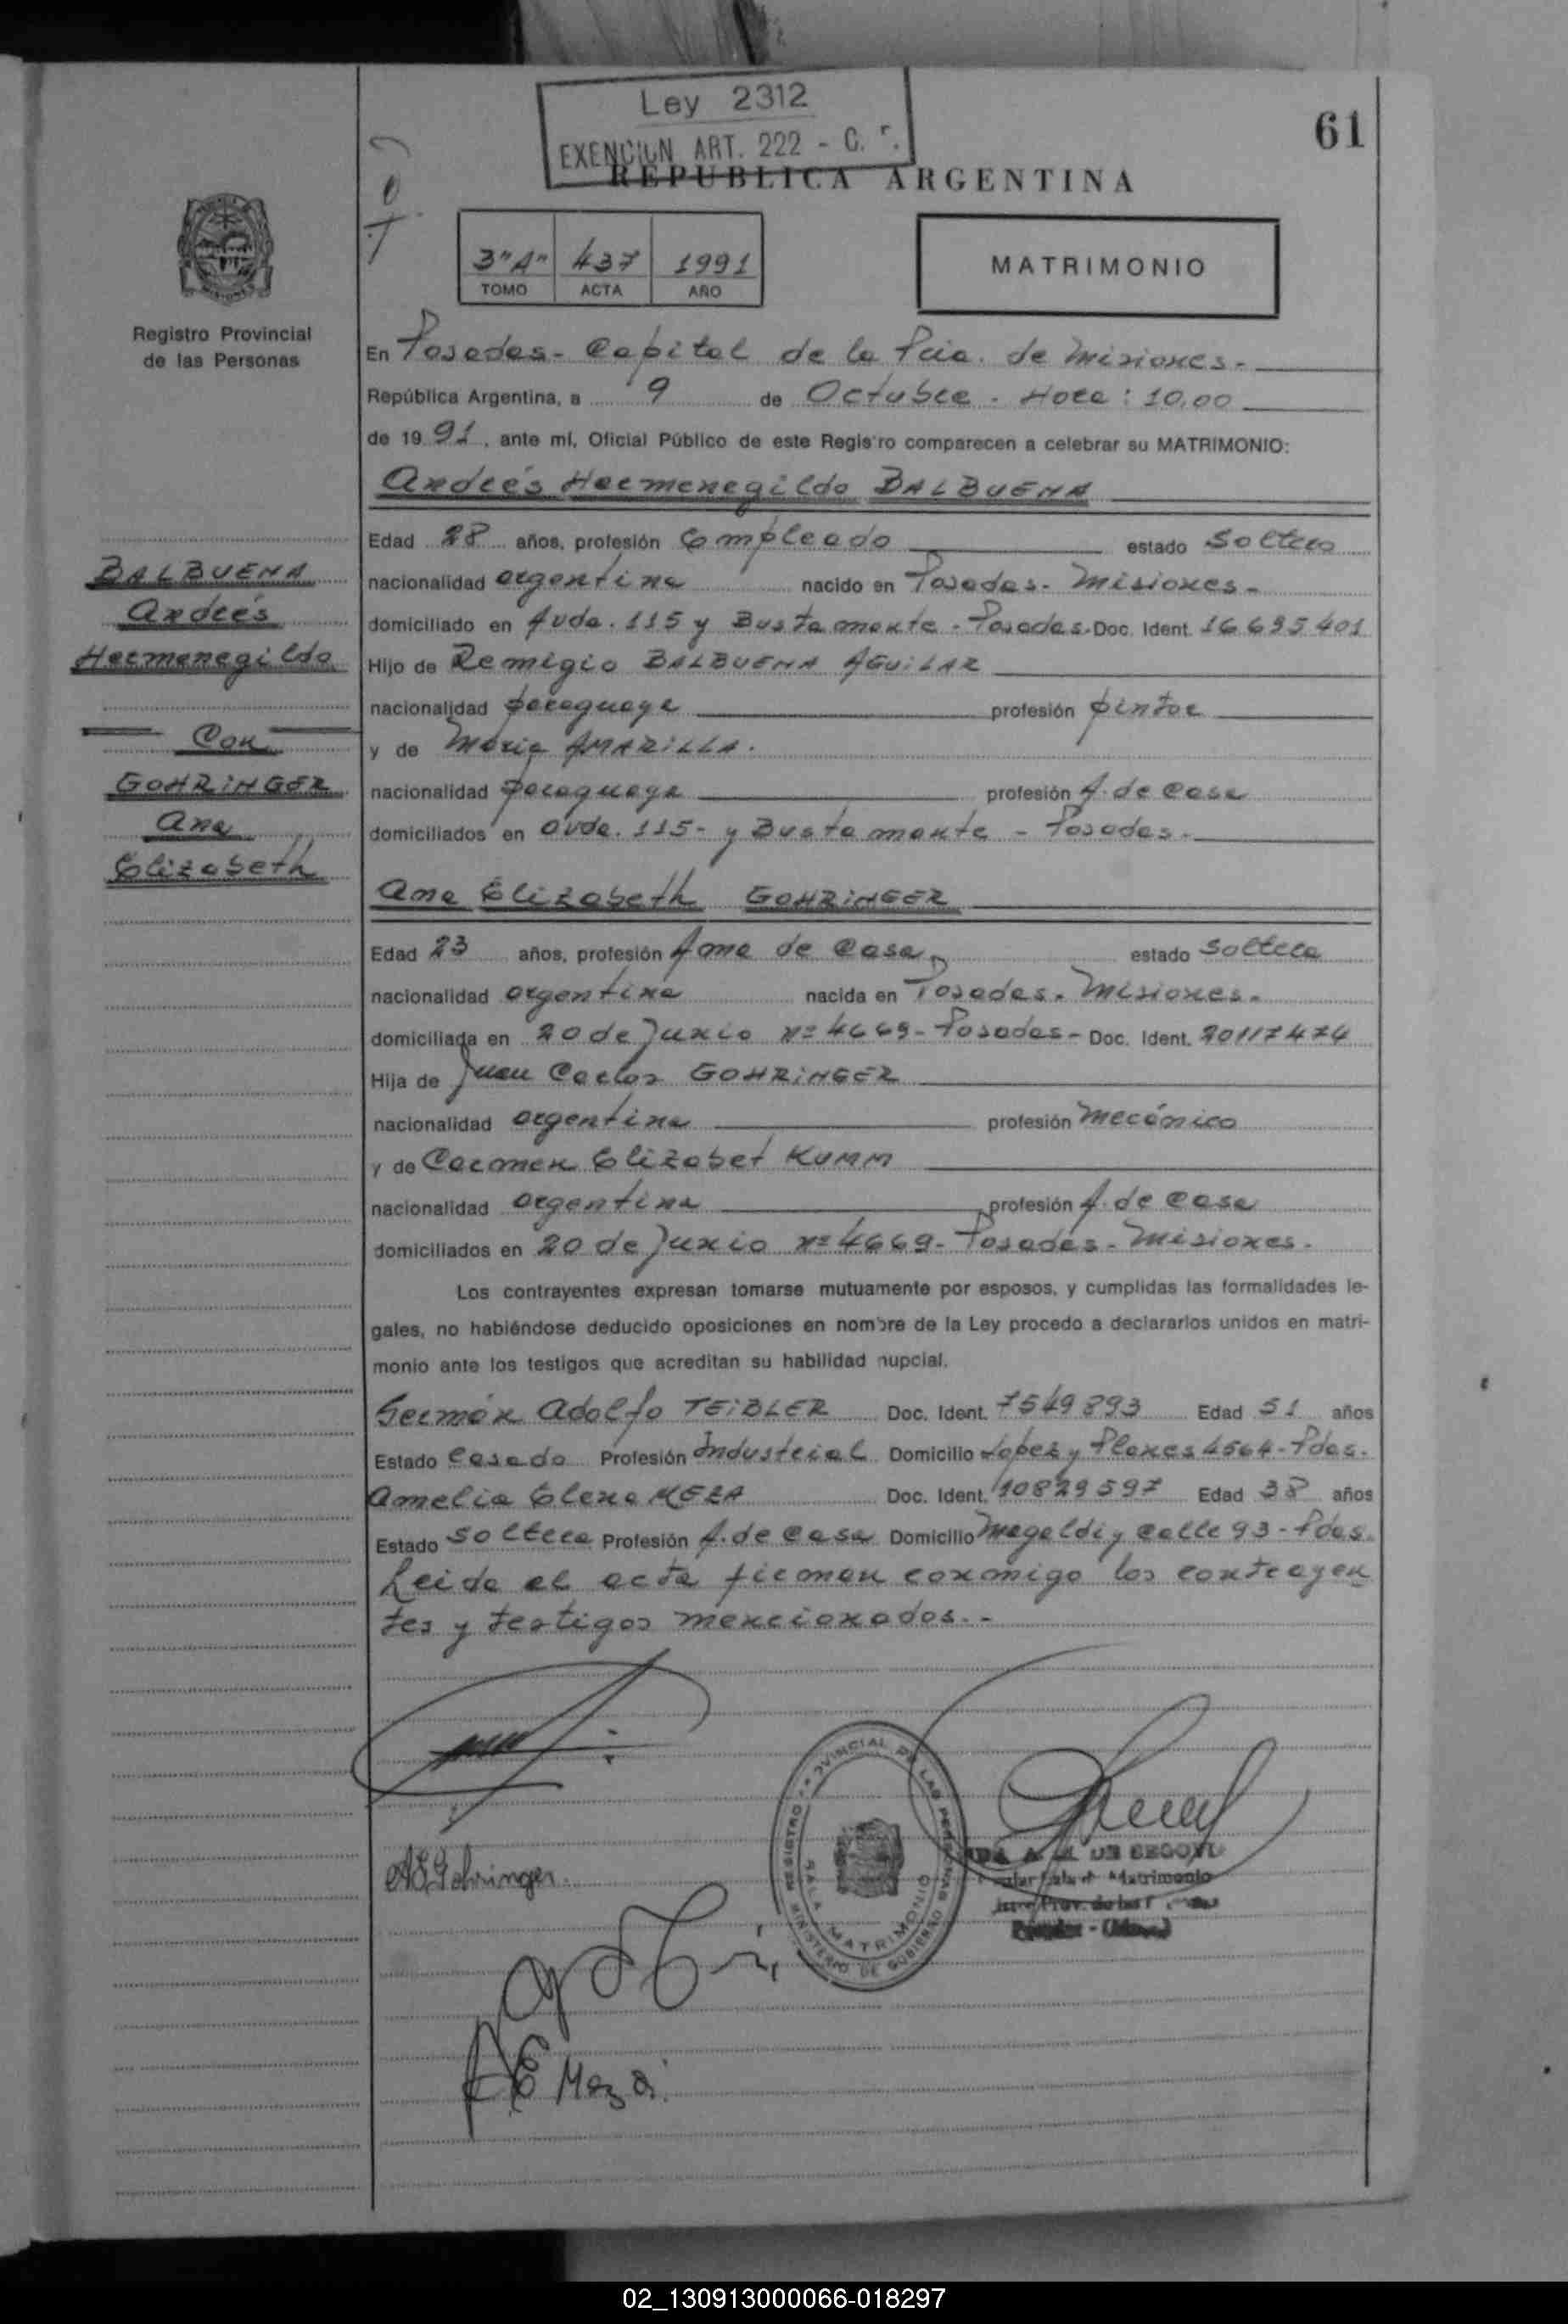 Ley 2312
EXENCION ART. 222 - C.
61
REPUBLICA ARGENTINA
3"A" 437 1991
TOMO ACTA AÑO
MATRIMONIO
Registro Provincial
de las Personas
En Posadas - Capital de la Pcia. de Misiones.-
República Argentina, a 9 de Octubre - Hora: 10,00
de 1991, ante mí, Oficial Público de este Registro comparecen a celebrar su MATRIMONIO:
Andrés Hermenegildo BALBUENA
Edad 28 años, profesión Empleado estado Soltero
nacionalidad argentina nacido en Posadas - Misiones -
domiciliado en Avda. 115 y Bustamante - Posadas. Doc. Ident. 16695401
Hijo de Remigio BALBUENA AGUILAR
nacionalidad paraguaya profesión pintor
y de María AMARILLA.
nacionalidad paraguaya profesión A. de Casa
domiciliados en Avda. 115 - y Bustamante - Posadas.-
BALBUENA
Andrés
Hermenegildo
Con
GOHRINGER
Ana
Elizabeth
Ana Elizabeth GOHRINGER
Edad 23 años, profesión Ama de Casa estado Soltera
nacionalidad argentina nacida en Posadas - Misiones.
domiciliada en 20 de Junio nº 4669 - Posadas - Doc. Ident. 20117474
Hija de Juan Carlos GOHRINGER
nacionalidad argentina profesión mecánico
y de Carmen Elizabet KUMM
nacionalidad argentina profesión A. de Casa
domiciliados en 20 de Junio nº 4669 - Posadas - Misiones.
Los contrayentes expresan tomarse mutuamente por esposos, y cumplidas las formalidades le-
gales, no habiéndose deducido oposiciones en nombre de la Ley procedo a declararlos unidos en matri-
monio ante los testigos que acreditan su habilidad nupcial.
Germán Adolfo TEIBLER Doc. Ident. 7549893 Edad 51 años
Estado Casado Profesión Industrial Domicilio Lopez y Planes 4564 - Pdas.
Amelia Elena MEZA Doc. Ident. 10829597 Edad 38 años
Estado Soltera Profesión A. de Casa Domicilio Magaldi y Calle 93 - Pdas.
Leida el acta firman conmigo los contrayen
tes y testigos mencionados.-
REGISTRO PROVINCIAL DE LAS PERSONAS
SALA MATRIMONIO
MINISTERIO DE GOBIERNO
A. DE SEGOVI
Matrimonio
A E Gohringer.
A E Meza
02_130913000066-018297